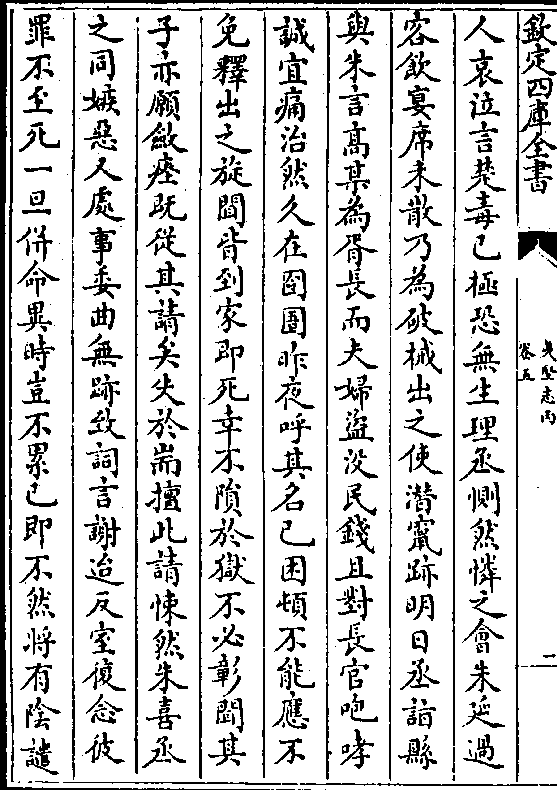 欽定四庫全書
夷堅志丙
卷五
一
人哀泣言楚毒已極恐無生理丞惻然憐之會朱延過
客飲宴席未散乃為破械出之使潛竄跡明日丞詣縣
與朱言高某為胥長而夫婦盜没民錢且對長官咆哮
誠宜痛治然久在囹圄昨夜呼其名已困頓不能應不
免釋出之旋聞皆到家即死幸不隕於獄不必彰聞其
子亦願斂瘞既從其請矣失於耑擅此請悚然朱喜丞
之同嫉惡又處事委曲無跡致詞言謝迨反室復念彼
罪不至死一旦併命異時豈不累已即不然将有陰譴